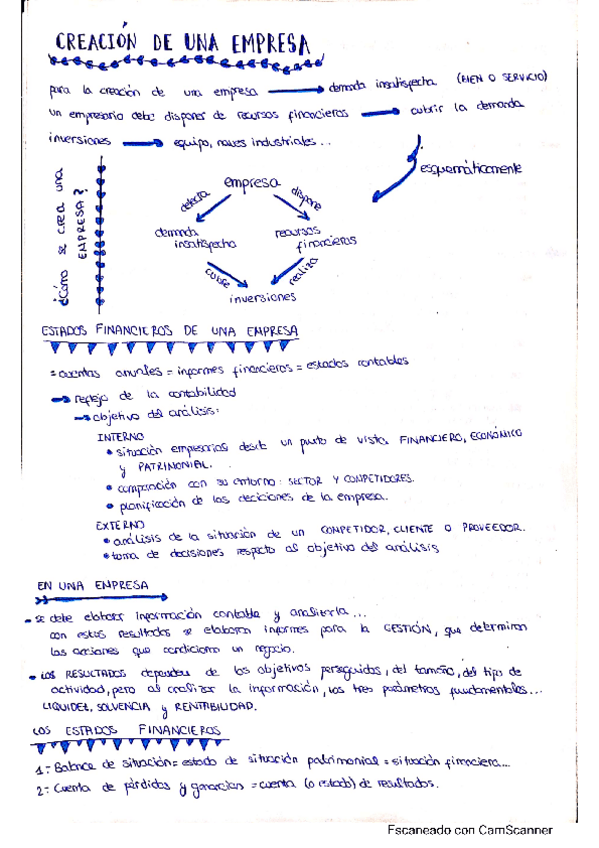 CREACIÓN DE UNA EMPRESA
para la creación de una empresa → demanda insatisfecha (BIEN O SERVICIO)
un empresario debe disponer de recursos financieros → cubrir la demanda
inversiones → equipo, naves industriales...
esquemáticamente
¿Cómo se crea una
EMPRESA?
empresa
detecta
dispone
demanda
insatisfecha
recursos
financieros
cubre
realiza
inversiones
ESTADOS FINANCIEROS DE UNA EMPRESA
= cuentas anuales = informes financieros = estados contables
→ reflejo de la contabilidad
→ objetivo del análisis:
INTERNO
• situación empresarial desde un punto de vista FINANCIERO, ECONÓMICO
y PATRIMONIAL.
• comparación con su entorno: SECTOR Y COMPETIDORES.
• planificación de las decisiones de la empresa.
EXTERNO
• análisis de la situación de un COMPETIDOR, CLIENTE O PROVEEDOR.
• toma de decisiones respecto al objetivo del análisis
EN UNA EMPRESA
- se debe elaborar información contable y analizarla...
con estos resultados se elaboran informes para la GESTIÓN, que determinan
las acciones que condicionan un negocio.
- LOS RESULTADOS dependen de los objetivos perseguidos, del tamaño, del tipo de
actividad, pero al analizar la información, los tres parámetros fundamentales...
LIQUIDEZ, SOLVENCIA y RENTABILIDAD.
LOS ESTADOS FINANCIEROS
1= Balance de situación = estado de situación patrimonial = situación financiera...
2= Cuenta de pérdidas y ganancias = cuenta (o estado) de resultados.
Escaneado con CamScanner